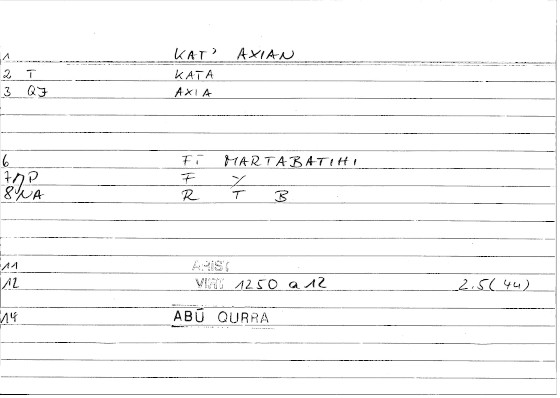 1 KAT' AXIAN
2 T KATA
3 QJ AXIA
6 FI MARTABATIHI
7 NP F Y
8 NA R T B
11 ARIST
12 VIRT 1250 a 12 2.5(44)
14 ABŪ QURRA